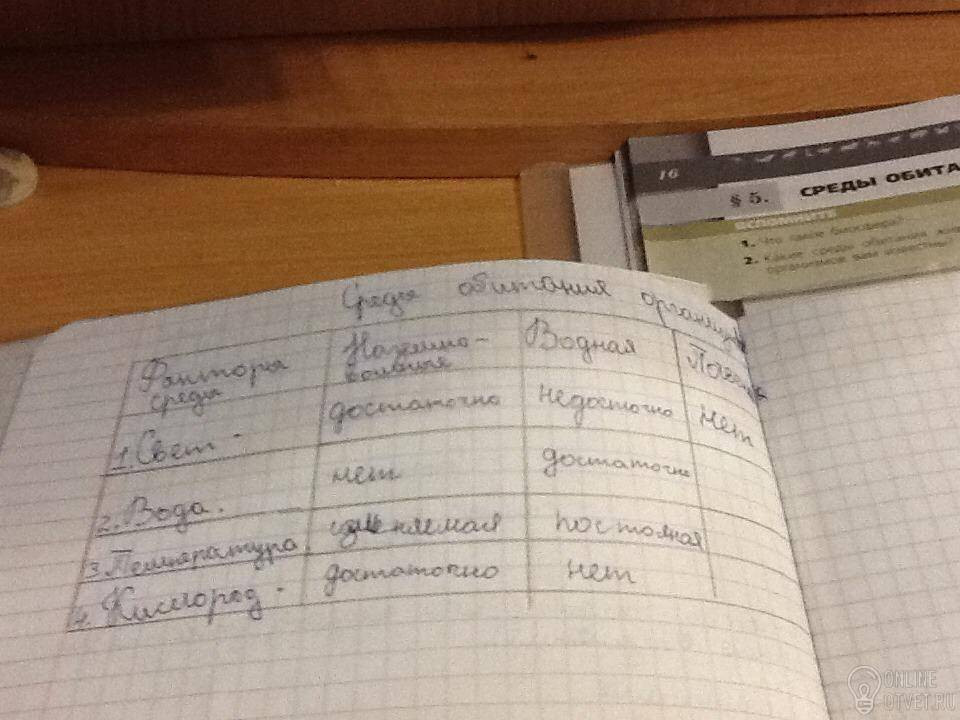 16
§ 5. СРЕДЫ ОБИТА
ВСПОМНИТЕ
1. Что такое биосфера?
2. Какие среды обитания жив
организмов вам известны?
Среды обитания организм
Факторы среды Наземно-воздушная Водная Почвен
1. Свет - достаточно недосточно нет
2. Вода. нет достаточно
3. Температура изменяемая постоянная
4. Кислород - достаточно нет
ONLINE
OTVET.RU